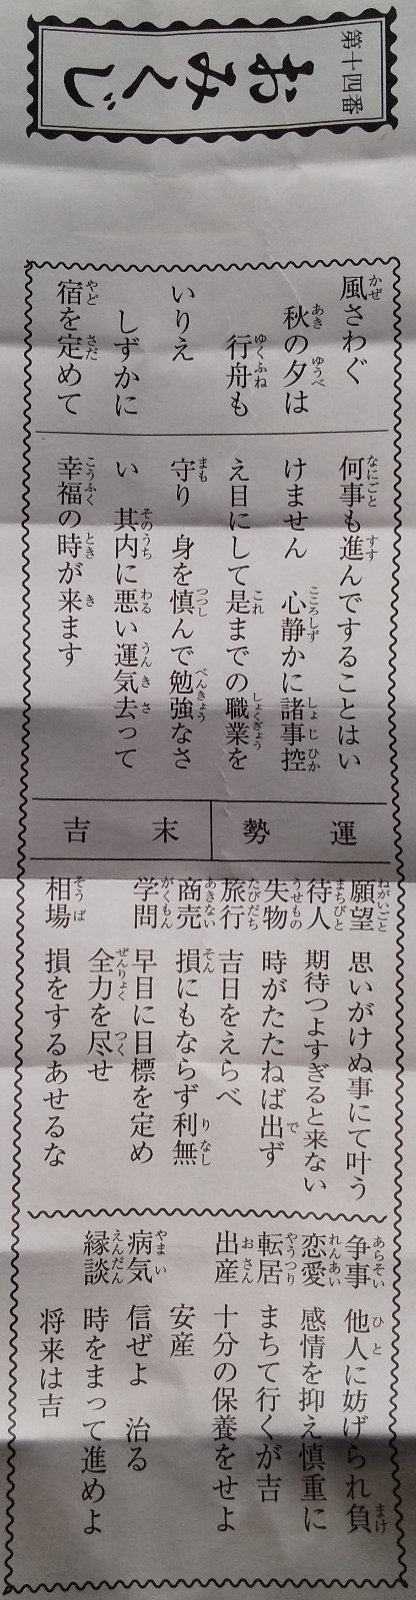 第十四番
おみくじ
風さわぐ
秋の夕は
行舟も
いりえ
しずかに
宿を定めて
何事も進んですることはい
けません 心静かに諸事控
え目にして是までの職業を
守り 身を慎んで勉強なさ
い 其内に悪い運気去って
幸福の時が来ます
運勢
末吉
願望 思いがけぬ事にて叶う
待人 期待つよすぎると来ない
失物 時がたたねば出ず
旅行 吉日をえらべ
商売 損にもならず利無
学問 早目に目標を定め
全力を尽せ
相場 損をするあせるな
争事 他人に妨げられ負
恋愛 感情を抑え慎重に
転居 まちて行くが吉
出産 十分の保養をせよ
安産
病気 信ぜよ 治る
縁談 時をまって進めよ
将来は吉